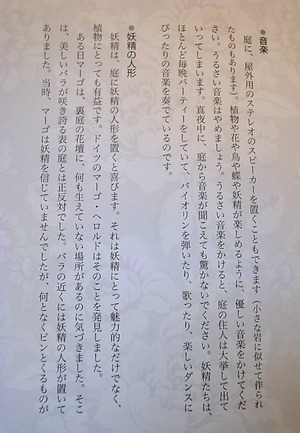 ●音楽
庭に、屋外用のステレオのスピーカーを置くこともできます（小さな岩に似せて作られ
たものもあります）。植物や花や鳥や蝶や妖精が楽しめるように、優しい音楽をかけてくだ
さい。うるさい音楽はやめましょう。うるさい音楽をかけると、庭の住人は大挙して出て
いってしまいます。真夜中に、庭から音楽が聞こえても驚かないでください。妖精たちは、
ほとんど毎晩パーティーをしていて、バイオリンを弾いたり、歌ったり、楽しいダンスに
ぴったりの音楽を奏でているのです。
●妖精の人形
妖精は、庭に妖精の人形を置くと喜びます。それは妖精にとって魅力的なだけでなく、
植物にとっても有益です。ドイツのマーゴ・ヘロルドはそのことを発見しました。
ある日マーゴは、裏庭の花壇に、何も生えていない場所があるのに気づきました。そこ
は、美しいバラが咲き誇る表の庭とは正反対でした。バラの近くには妖精の人形が置いて
ありました。当時、マーゴは妖精を信じていませんでしたが、何となくピンとくるものが